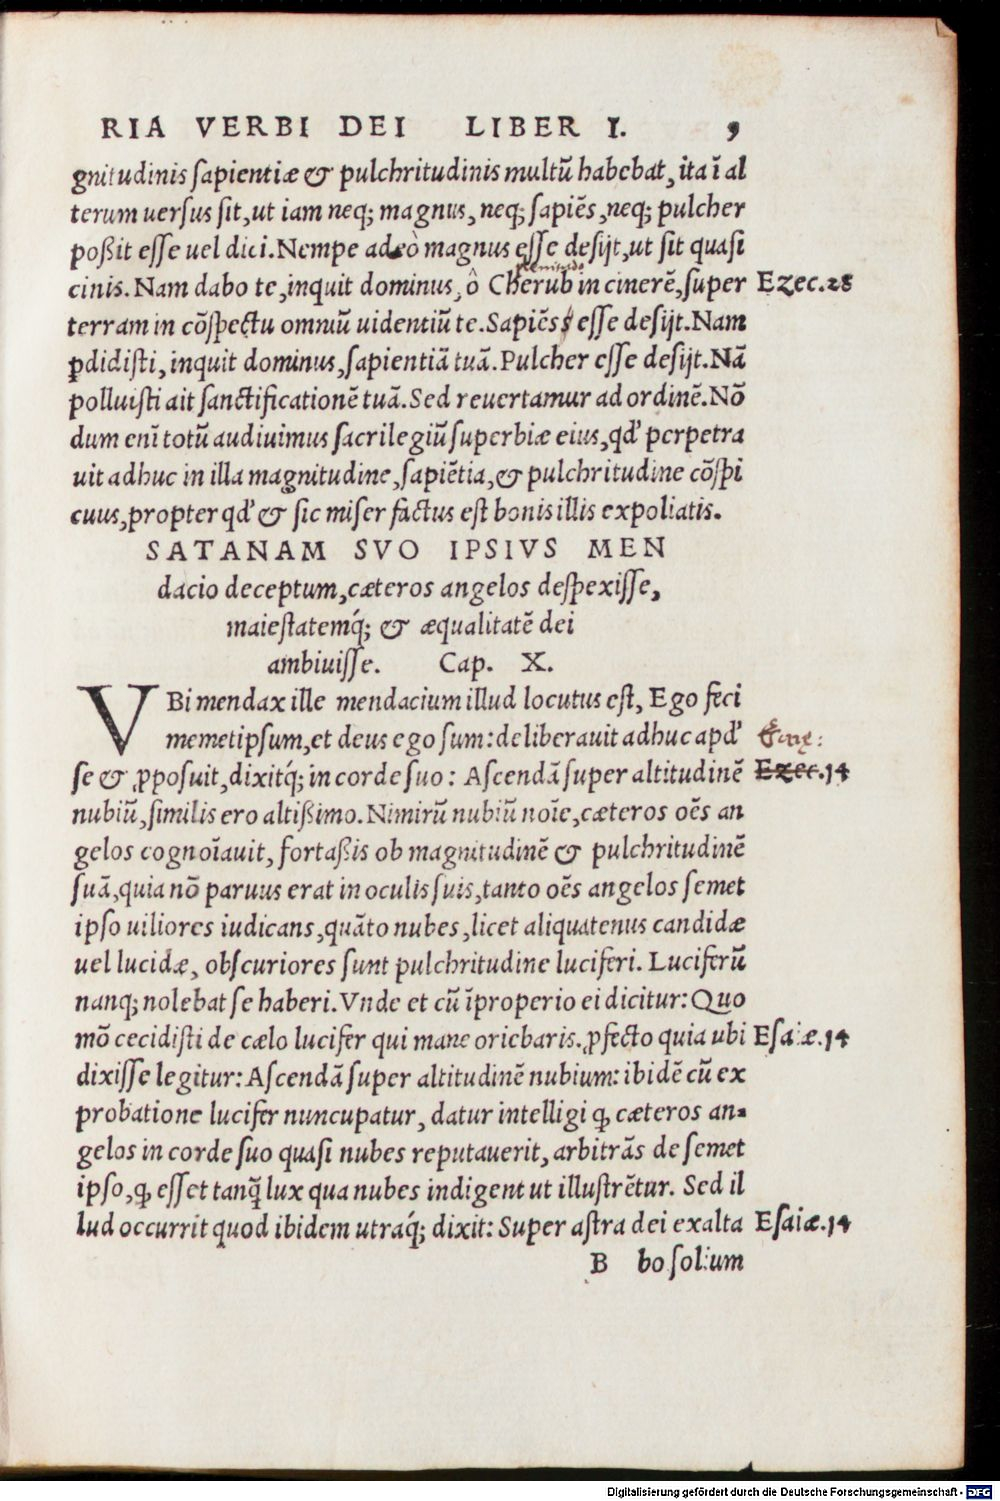 RIA VERBI DEI LIBER I. 9
gnitudinis sapientiæ & pulchritudinis multũ habebat, ita ĩ al
terum uersus sit, ut iam neq; magnus, neq; sapiẽs, neq; pulcher
poßit esse uel dici. Nempe adeò magnus esse desijt, ut sit quasi
cinis. Nam dabo te, inquit dominus, ô Cherub in cinerẽ, super Ezec.28
terram in cõspectu omniũ uidentiũ te. Sapiẽs esse desijt. Nam
ꝑdidisti, inquit dominus, sapientiã tuã. Pulcher esse desijt. Nã
polluisti ait sanctificationẽ tuã. Sed reuertamur ad ordinẽ. Nõ
dum enĩ totũ audiuimus sacrilegiũ superbiæ eius, qď perpetra
uit adhuc in illa magnitudine, sapiẽtia, & pulchritudine cõspi
cuus, propter qď & sic miser factus est bonis illis expoliatis.
SATANAM SVO IPSIVS MEN
dacio deceptum, cæteros angelos despexisse,
maiestatemq́; & æqualitatẽ dei
ambiuisse. Cap. X.
VBi mendax ille mendacium illud locutus est, Ego feci
memetipsum, et deus ego sum: deliberauit adhuc apď
se & ꝓposuit, dixitq́; in corde suo: Ascendã super altitudinẽ Ezec.14
nubiũ, similis ero altißimo. Nimirũ nubiũ noĩe, cæteros oẽs an
gelos cognoĩauit, fortaßis ob magnitudinẽ & pulchritudinẽ
suã, quia nõ paruus erat in oculis suis, tanto oẽs angelos semet
ipso uiliores iudicans, quãto nubes, licet aliquatenus candidæ
uel lucidæ, obscuriores sunt pulchritudine luciferi. Luciferũ
nanq; nolebat se haberi. Vnde et cũ ĩproperio ei dicitur: Quo
mõ cecidisti de cælo lucifer qui mane oriebaris. ꝓfecto quia ubi Esaiæ.14
dixisse legitur: Ascendã super altitudinẽ nubium: ibidẽ cũ ex
probatione lucifer nuncupatur, datur intelligi ꝙ cæteros an-
gelos in corde suo quasi nubes reputauerit, arbitrãs de semet
ipso, ꝙ esset tanq̃ lux qua nubes indigent ut illustrẽtur. Sed il
lud occurrit quod ibidem utraq́; dixit: Super astra dei exalta Esaiæ.14
B bo solium
Digitalisierung gefördert durch die Deutsche Forschungsgemeinschaft - DFG